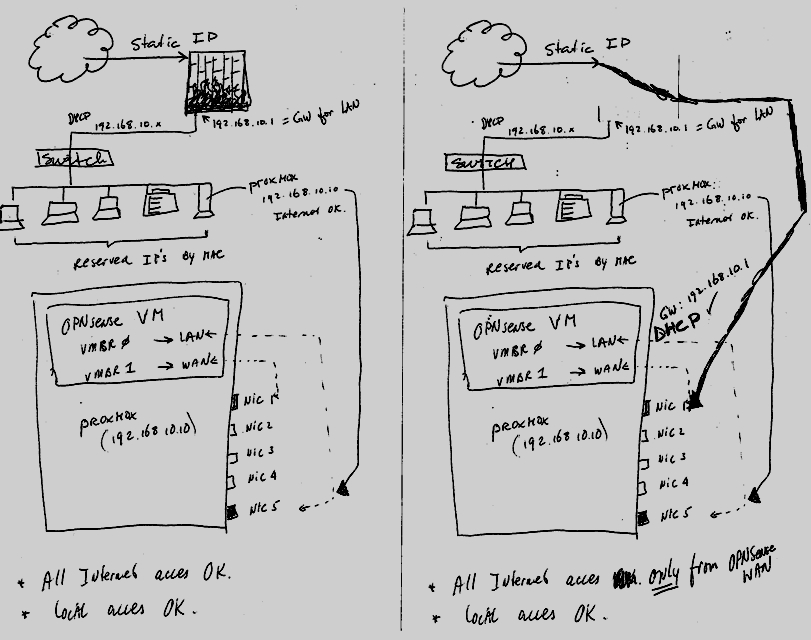 Static ID
DHCP
192.168.10.x
192.168.10.1 = GW for LAN
Switch
proxmox
192.168.10.10
Internet OK.
Reserved IP's By MAC
OPNsense VM
VMBR 0 → LAN
VMBR 1 → WAN
proxmox
(192.168.10.10)
NIC 1
NIC 2
NIC 3
NIC 4
NIC 5
* All Internet acces OK.
* Local acces OK.
Static ID
DHCP
192.168.10.x
192.168.10.1 = GW for LAN
SWITCH
proxmox:
192.168.10.10
Internet OK.
Reserved IP's By MAC
GW: 192.168.10.1
DHCP
OPNsense VM
VMBR 0 → LAN
VMBR 1 → WAN
proxmox
(192.168.10.10)
NIC 1
NIC 2
NIC 3
NIC 4
NIC 5
* All Internet acces only from OPNsense WAN
* Local acces OK.